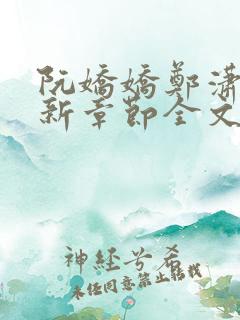 阮嬌嬌鄭瀟
新章節全文
神經兮希
未經同意禁止轉載